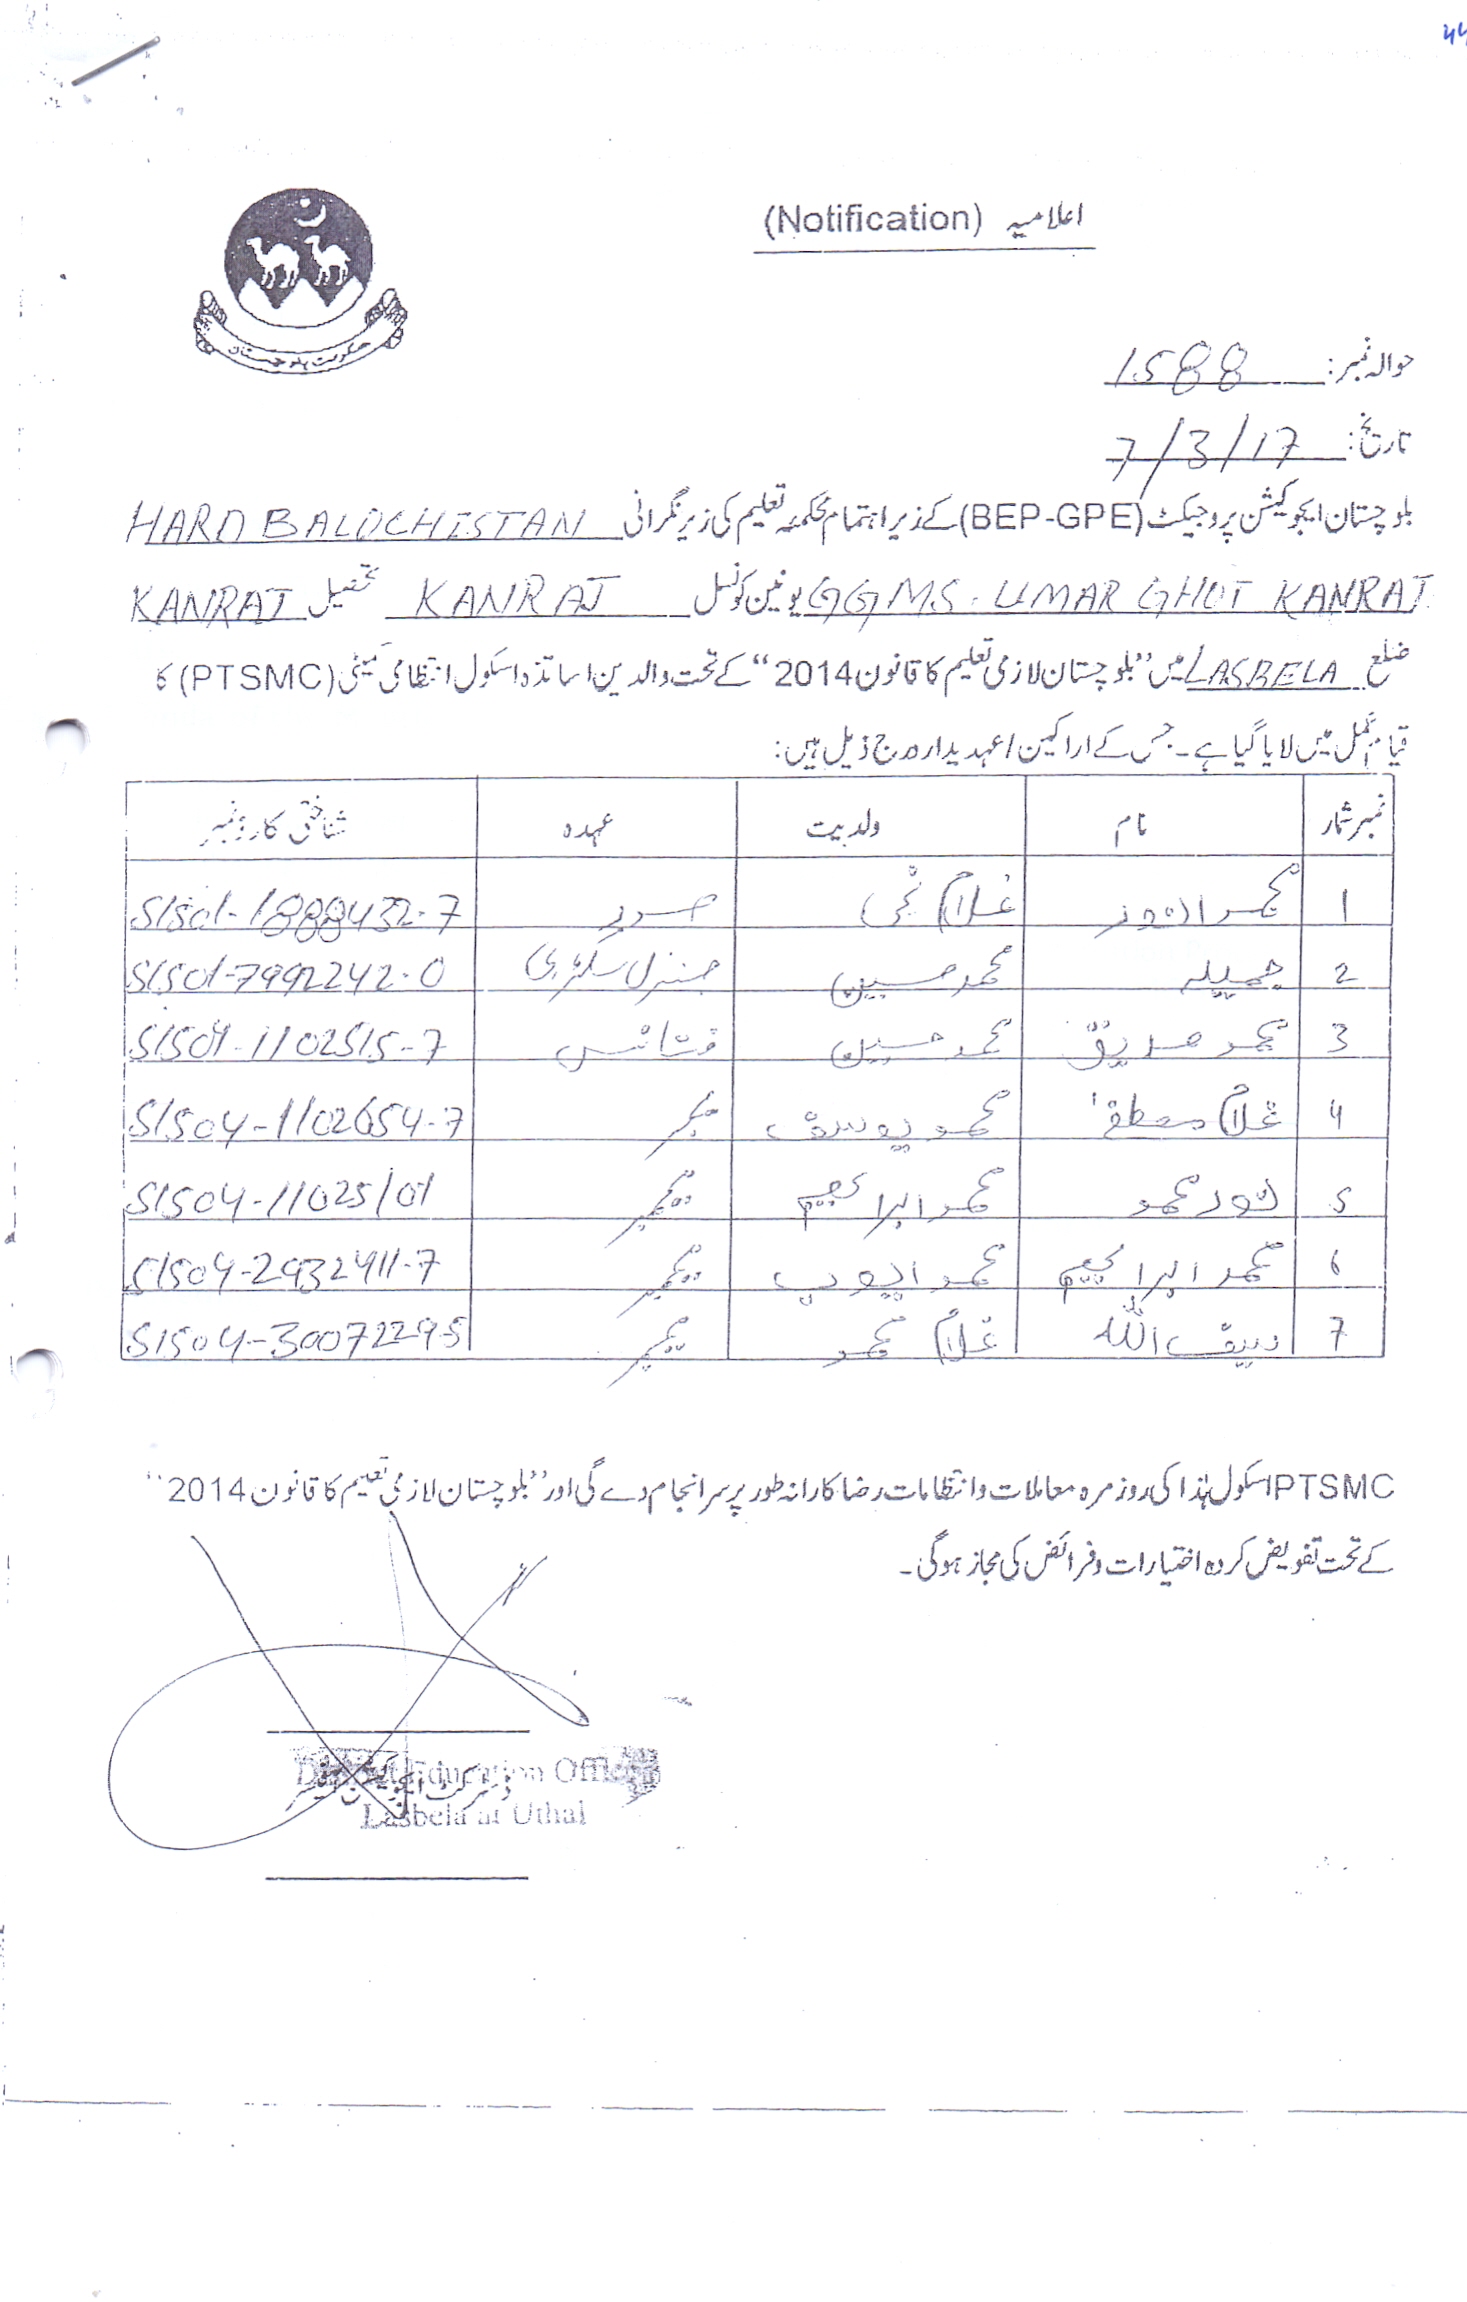 44
اعلامیہ (Notification)
حکومت بلوچستان
حوالہ نمبر: 1588
تاریخ: 7/3/17
بلوچستان ایجوکیشن پروجیکٹ (BEP-GPE) کے زیر اہتمام محکمہ تعلیم کی زیر نگرانی HARD BALOCHISTAN
GGMS. UMAR GHOT KANRAJ یونین کونسل KANRAJ تحصیل KANRAJ
ضلع LASBELA میں "بلوچستان لازمی تعلیم کا قانون 2014" کے تحت والدین اساتذہ اسکول انتظامی کمیٹی (PTSMC) کا
قیام عمل میں لایا گیا ہے۔ جس کے اراکین / عہدیدار درج ذیل ہیں:
نمبر شمار نام ولدیت عہدہ شناختی کارڈ نمبر
1 محمد انور غلام نبی صدر 51501-1888432-7
2 جمیلہ محمد حسین جنرل سکٹری 51501-7992242-0
3 محمد صدیق محمد حسین فنانس 51504-1102515-7
4 غلام مصطفیٰ محمد یوسف ممبر 51504-1102654-7
5 نور محمد محمد ابراہیم ممبر 51504-11025101
6 محمد ابراہیم محمد ایوب ممبر 51504-2932411-7
7 سیف اللہ غلام محمد ممبر 51504-3007229-5
PTSMC اسکول ہٰذا کی روزمرہ معاملات و انتظامات رضا کارانہ طور پر سرانجام دے گی اور "بلوچستان لازمی تعلیم کا قانون 2014"
کے تحت تفویض کردہ اختیارات و فرائض کی مجاز ہوگی۔
ڈسٹرکٹ ایجوکیشن آفیسر
District Education Officer
Lasbela at Uthal